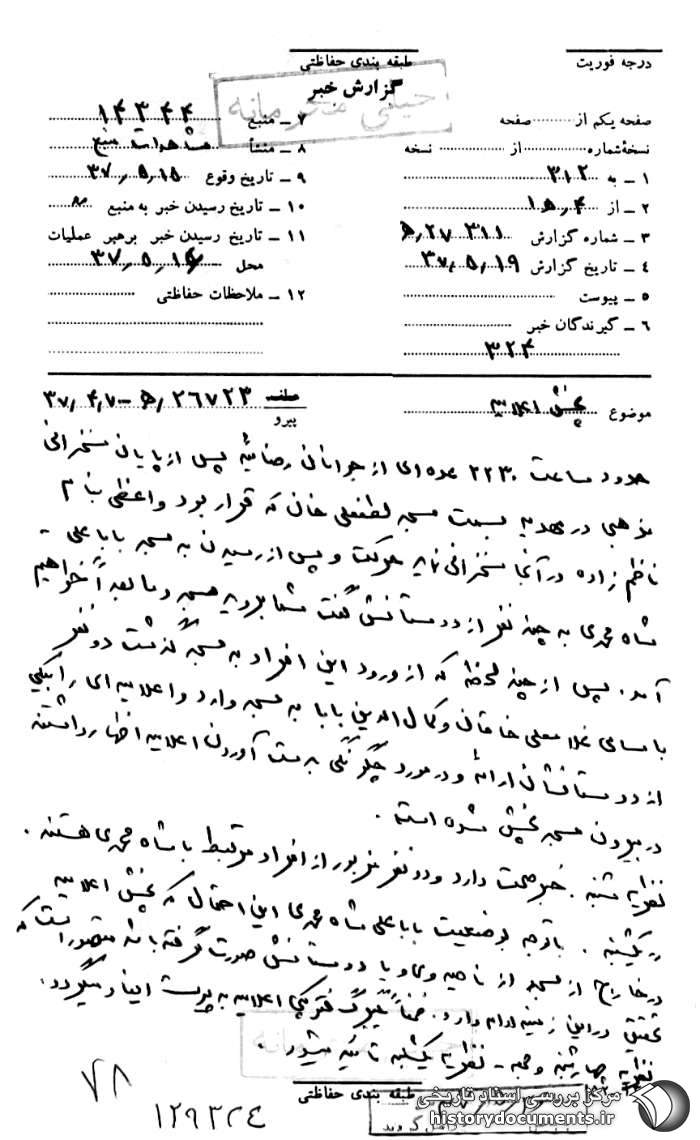 درجه فوریت
طبقه بندی حفاظتی
خیلی محرمانه
گزارش خبر
صفحه یکم از صفحه
نسخه‌شماره از نسخه
۱ – به ۳۱۲
۲ – از ۴ﻫ۱
۳ – شماره گزارش ۳۱۱ ۲۷/ﻫ
۴ – تاریخ گزارش ۳۷/۵/۱۹
۵ – پیوست
۶ – گیرندگان خبر
۳۲۴
۷ – منبع ۱۴۳۴۴
۸ – منشأ مشاهدات منبع
۹ – تاریخ وقوع ۳۷/۵/۱۵
۱۰ – تاریخ رسیدن خبر به منبع
۱۱ – تاریخ رسیدن خبر برهبر عملیات
محل ۳۷/۵/۱۶
۱۲ – ملاحظات حفاظتی
موضوع پخش اعلامیه
پیرو ۲۶۷۲۳/ﻫ – ۳۷/۴/۷
حدود ساعت ۲۲۳۰ عده‌ای از جوانان رضائیه پس از پایان سخنرانی
مذهبی در مهدیه بسمت مسجد لطفعلی خان که قرار بود واعظی بنام
ناظم زاده در آنجا سخنرانی نماید حرکت و پس از رسیدن به مسجد باباعلی –
شاه محمدی به چند نفر از دوستانش گفت شما بروید مسجد و ما بعداً خواهیم
آمد. پس از چند لحظه که از ورود این افراد به مسجد گذشت دو نفر
باسامی غلامعلی خاقانی و کمال الدین بابا به مسجد وارد و اعلامیه ای را بیکی
از دوستانشان ارائه و در مورد چگونگی بدست آوردن اعلامیه اظهار داشتند
در بیرون مسجد پخش شده است.
نظریه شنبه . خبر صحت دارد و دو نفر مزبور از افراد مرتبط با شاه محمدی هستند .
یکشنبه . باتوجه بوضعیت باباعلی شاه محمدی این احتمال که پخش اعلامیه
در خارج از مسجد از ناحیه وی و یا دوستانش صورت گرفته باشد متصور است که
تحقیق در این زمینه ادامه دارد. ضمناً یکبرگ فتوکپی اعلامیه به پیوست ایفاد میگردد.
نظریه چهارشنبه و جمعه – نظریه یکشنبه تائید میشود .
خیلی محرمانه
طبقه بندی حفاظتی
۷۸
۱۲۹۳۲۴
مرکز بررسی اسناد تاریخی
historydocuments.ir